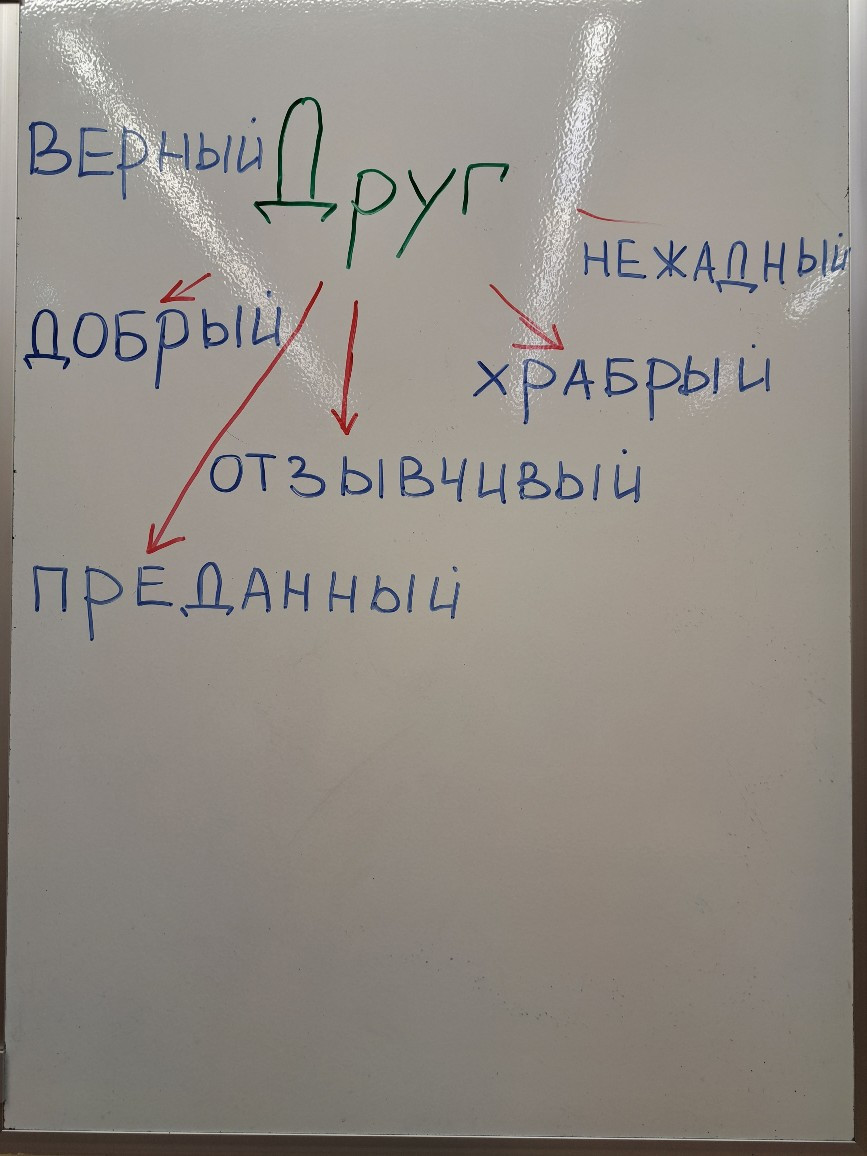 ВЕРНЫЙ
Друг
НЕЖАДНЫЙ
ДОБРЫЙ
ХРАБРЫЙ
ОТЗЫВЧИВЫЙ
ПРЕДАННЫЙ